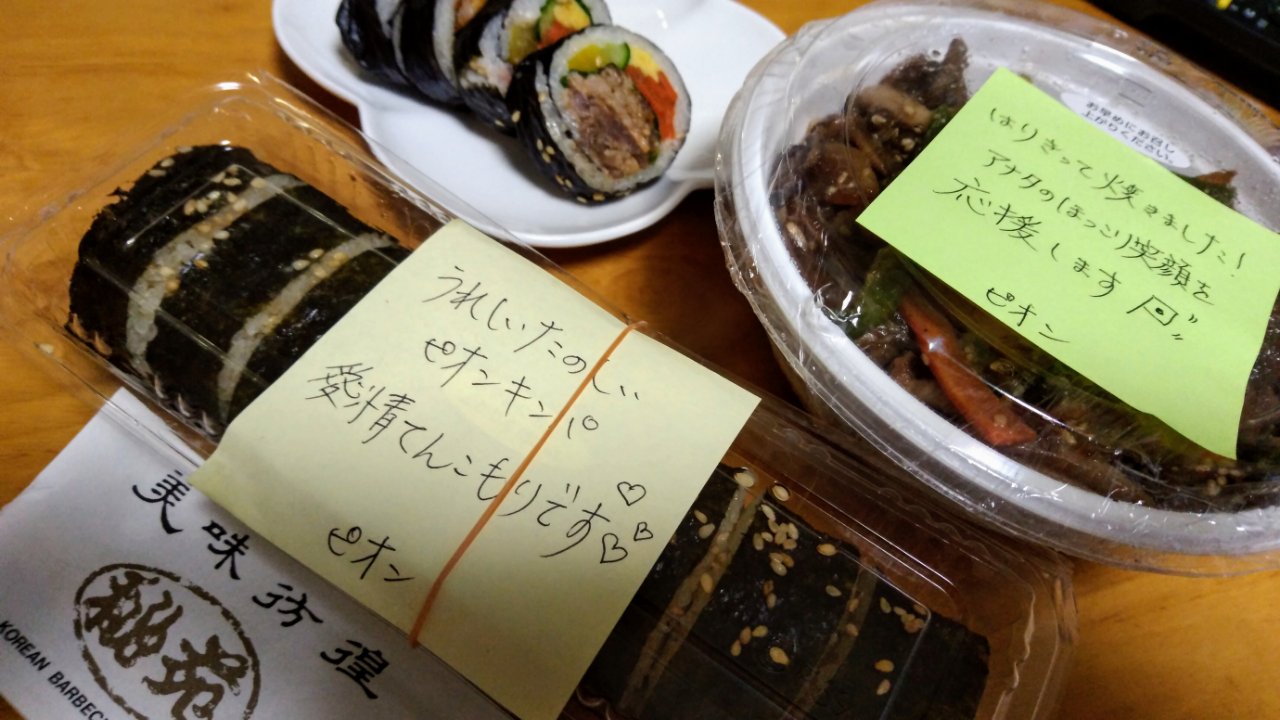 お早めにお召し
上がりください。
はりきって焼きました!
アナタのほっこり笑顔を
応援します
ピオン
うれしいたのしい
ピオンキンパ
愛情てんこもりです♡♡♡
ピオン
美味彷徨
秘苑
KOREAN BARBEC